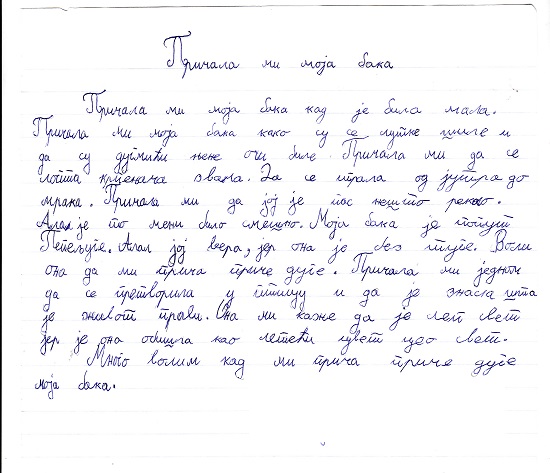 Причала ми моја бака
Причала ми моја бака кад је била мала.
Причала ми моја бака како су се лутке шиле и
да су дугмићи њене очи биле. Причала ми да се
лопта крпењача звала. Да се играла од јутра до
мрака. Причала ми да јој је пас нешто рекао.
Алал је то мени било смешно. Моја бака је попут
Пепељуге. Алал јој вера, јер она је без туге. Воли
она да ми прича приче дуге. Причала ми једном
да се претворила у птицу и да је знала шта
је живот прави. Она ми каже да је леп свет
јер је она обишла као летећи цвет цео свет.
Много волим кад ми прича приче дуге
моја бака.